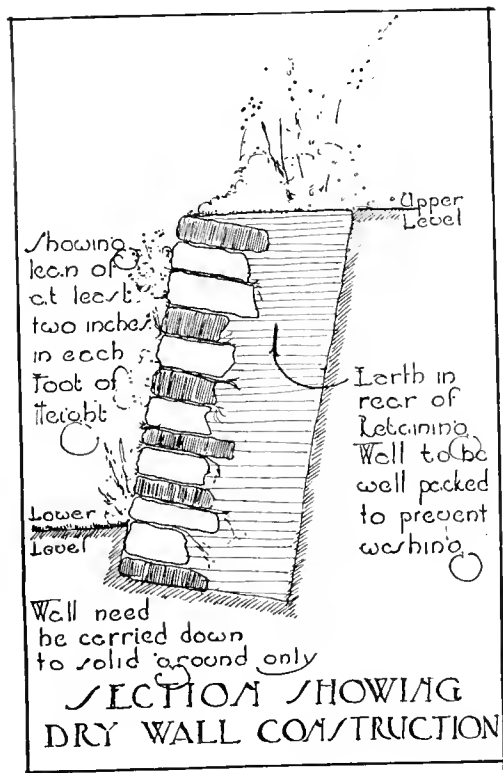 Upper
Level
Showing
lean of
at least
two inches
in each
Foot of
Height
Earth in
rear of
Retaining
Wall to be
well packed
to prevent
washing
Lower
Level
Wall need
be carried down
to solid ground only
SECTION SHOWING
DRY WALL CONSTRUCTION